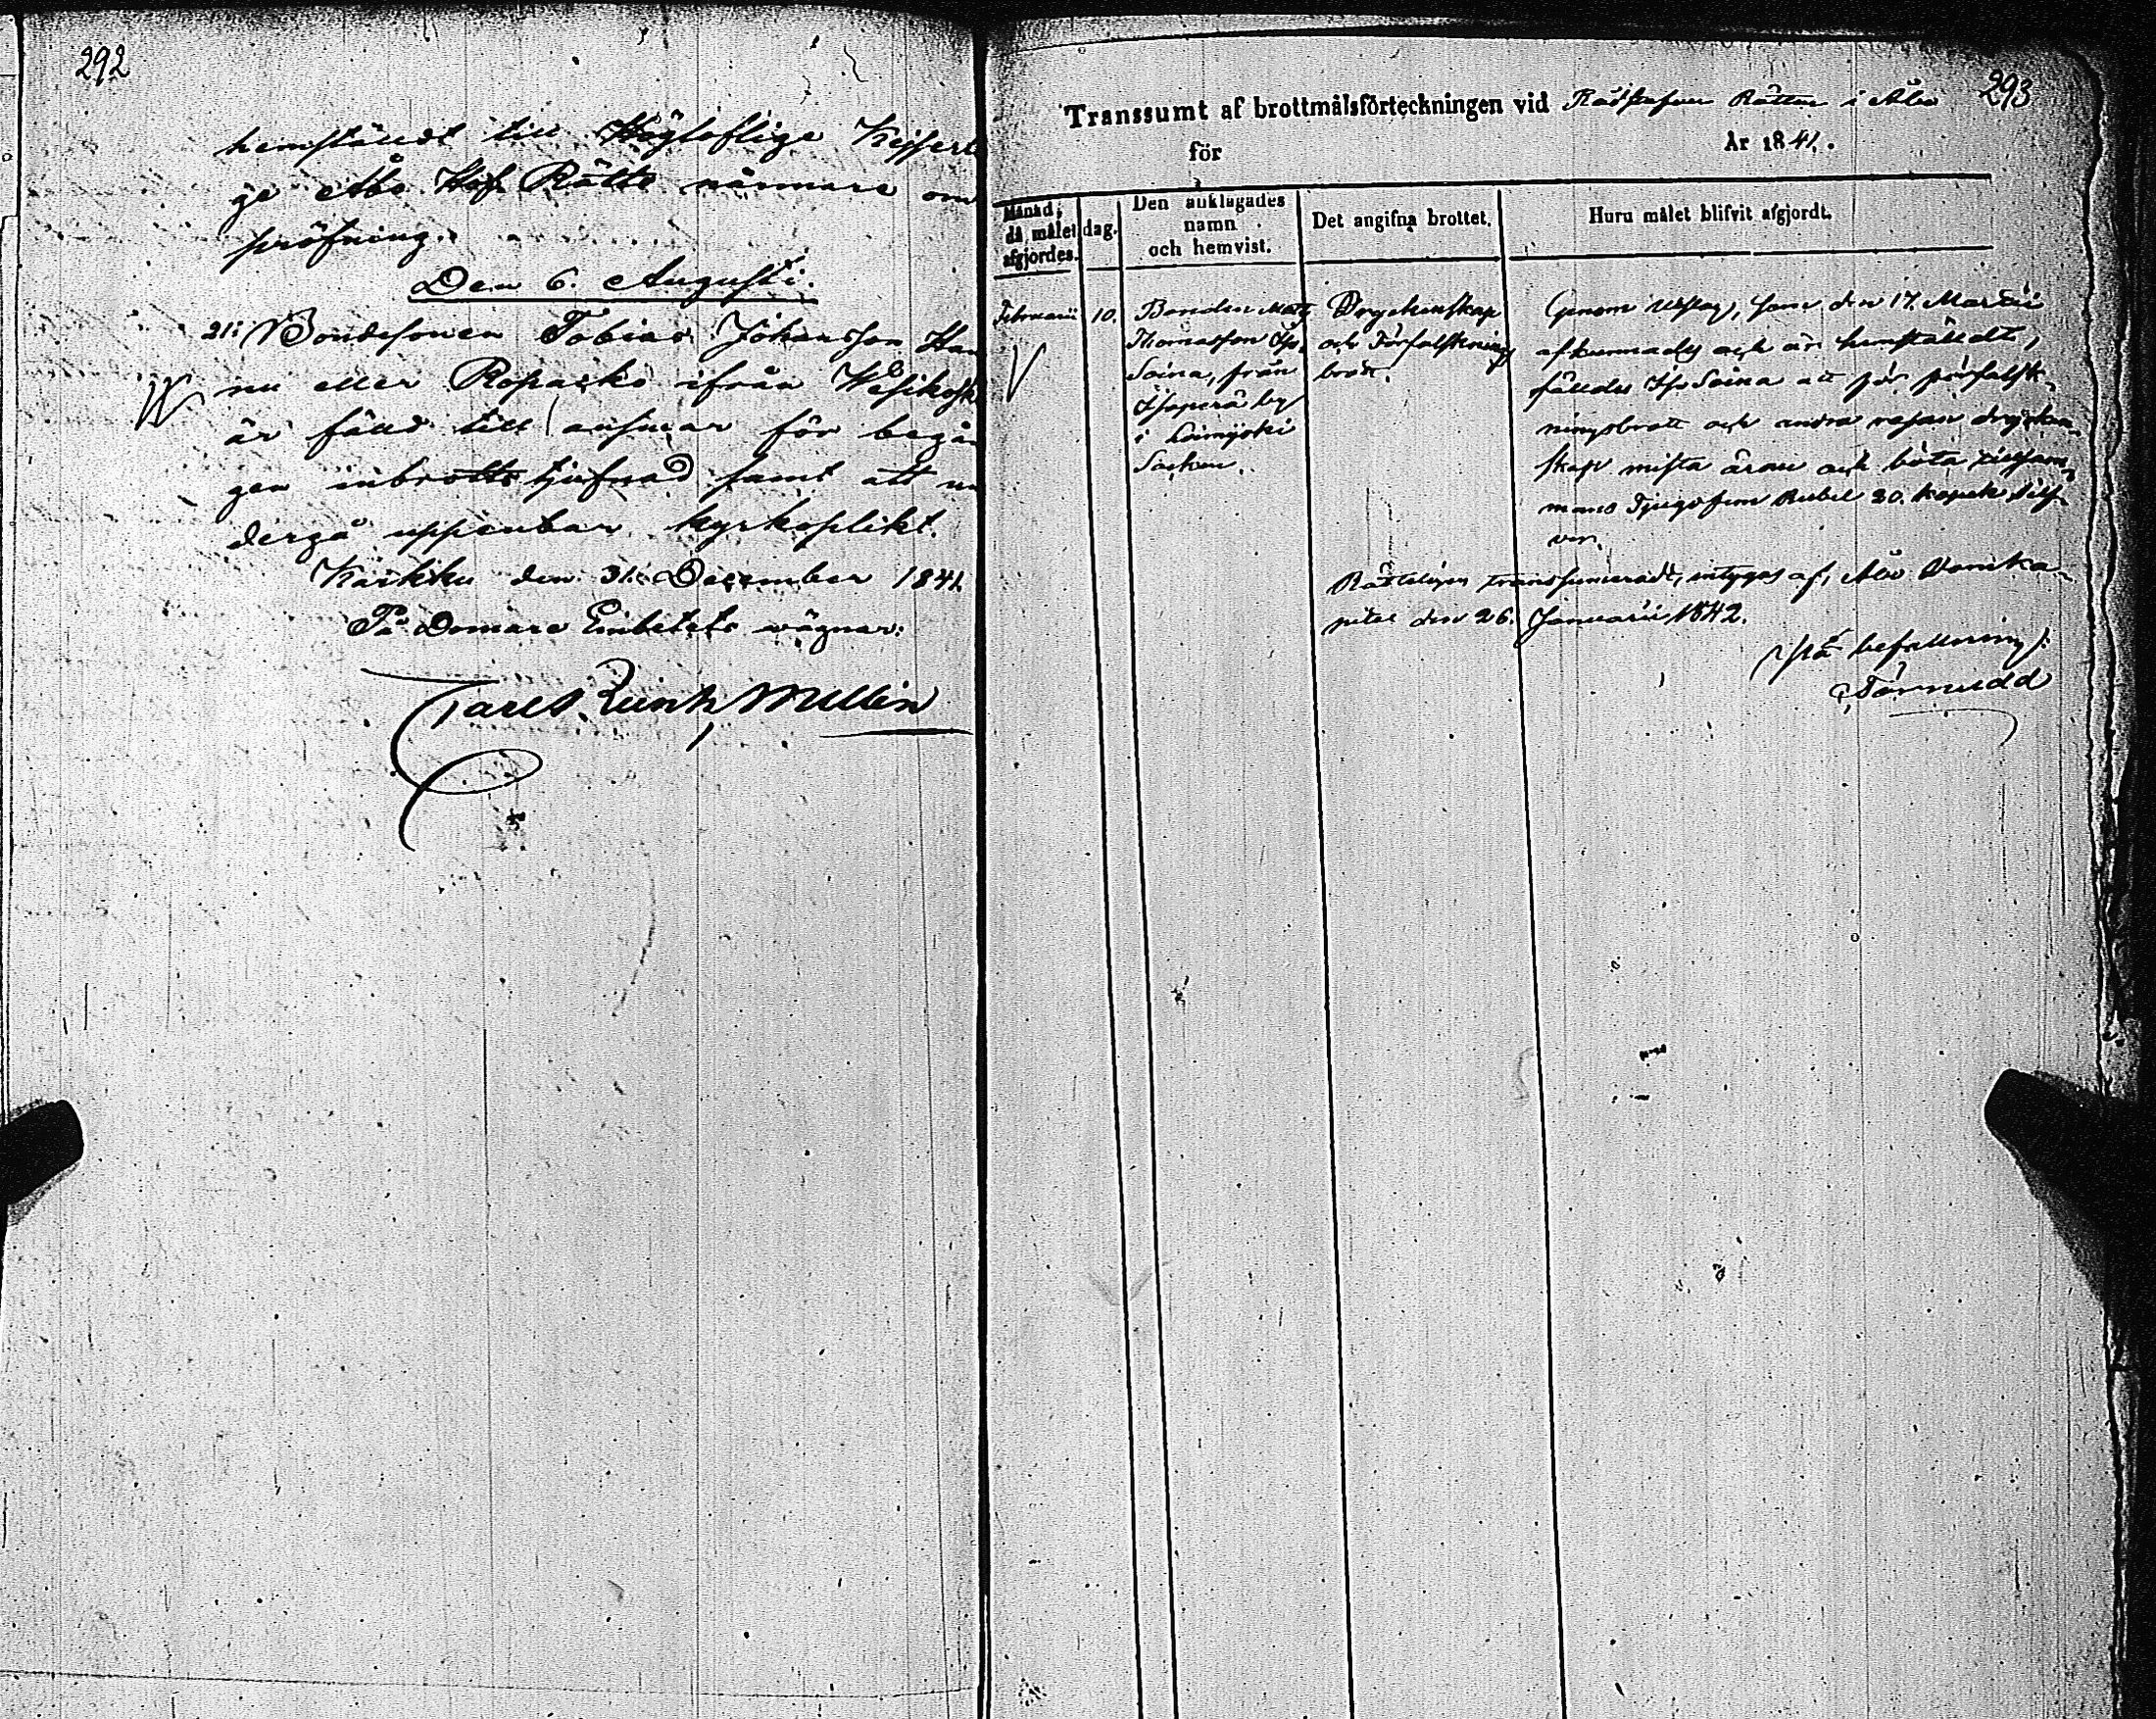 292
hemstäldt till Högloflige Kejserli
ge Åbo Hof Rätts närmare om
pröfning.
Den 6. Augusti.
21: Bondesonen Tobias Johansson Han
nu eller Ropakko ifrån Wesikosk
är fälld till answar för begån
gen inbrotts tjufnad samt att un
dergå uppenbar kyrkoplikt.
Karkku den 31. December 1841.
På Domare Embetets vägnar:
Carl Reinh Mellin
293
Transsumt af brottmålsförteckningen vid Rådstufvu Rätten i Åbo
för År 1841.
Månad, då målet afgjordes.
dag.
Den anklagades namn och hemvist.
Det angifna brottet.
Huru målet blifvit afgjordt.
Februarii 10.
Bonden Matts
Thomasson
Soina, från
Isoperä by
i Loimijoki
Socken.
Dryckenskap
och Förfalsknings
brott.
Genom Utslag, som den 17. Martii
afkunnades och är hemstäldt,
fälldes Soina att för förfalsk-
ningsbrott och andra resan drycken-
skap mista äran och böta tillsam-
mans Tjugofem Rubel 80. kopek Silf-
ver.
Rätteligen transsumeradt, intygas af, Åbo Domka-
pitel den 26. Januarii 1842.
På befallning:
G, Törnudd